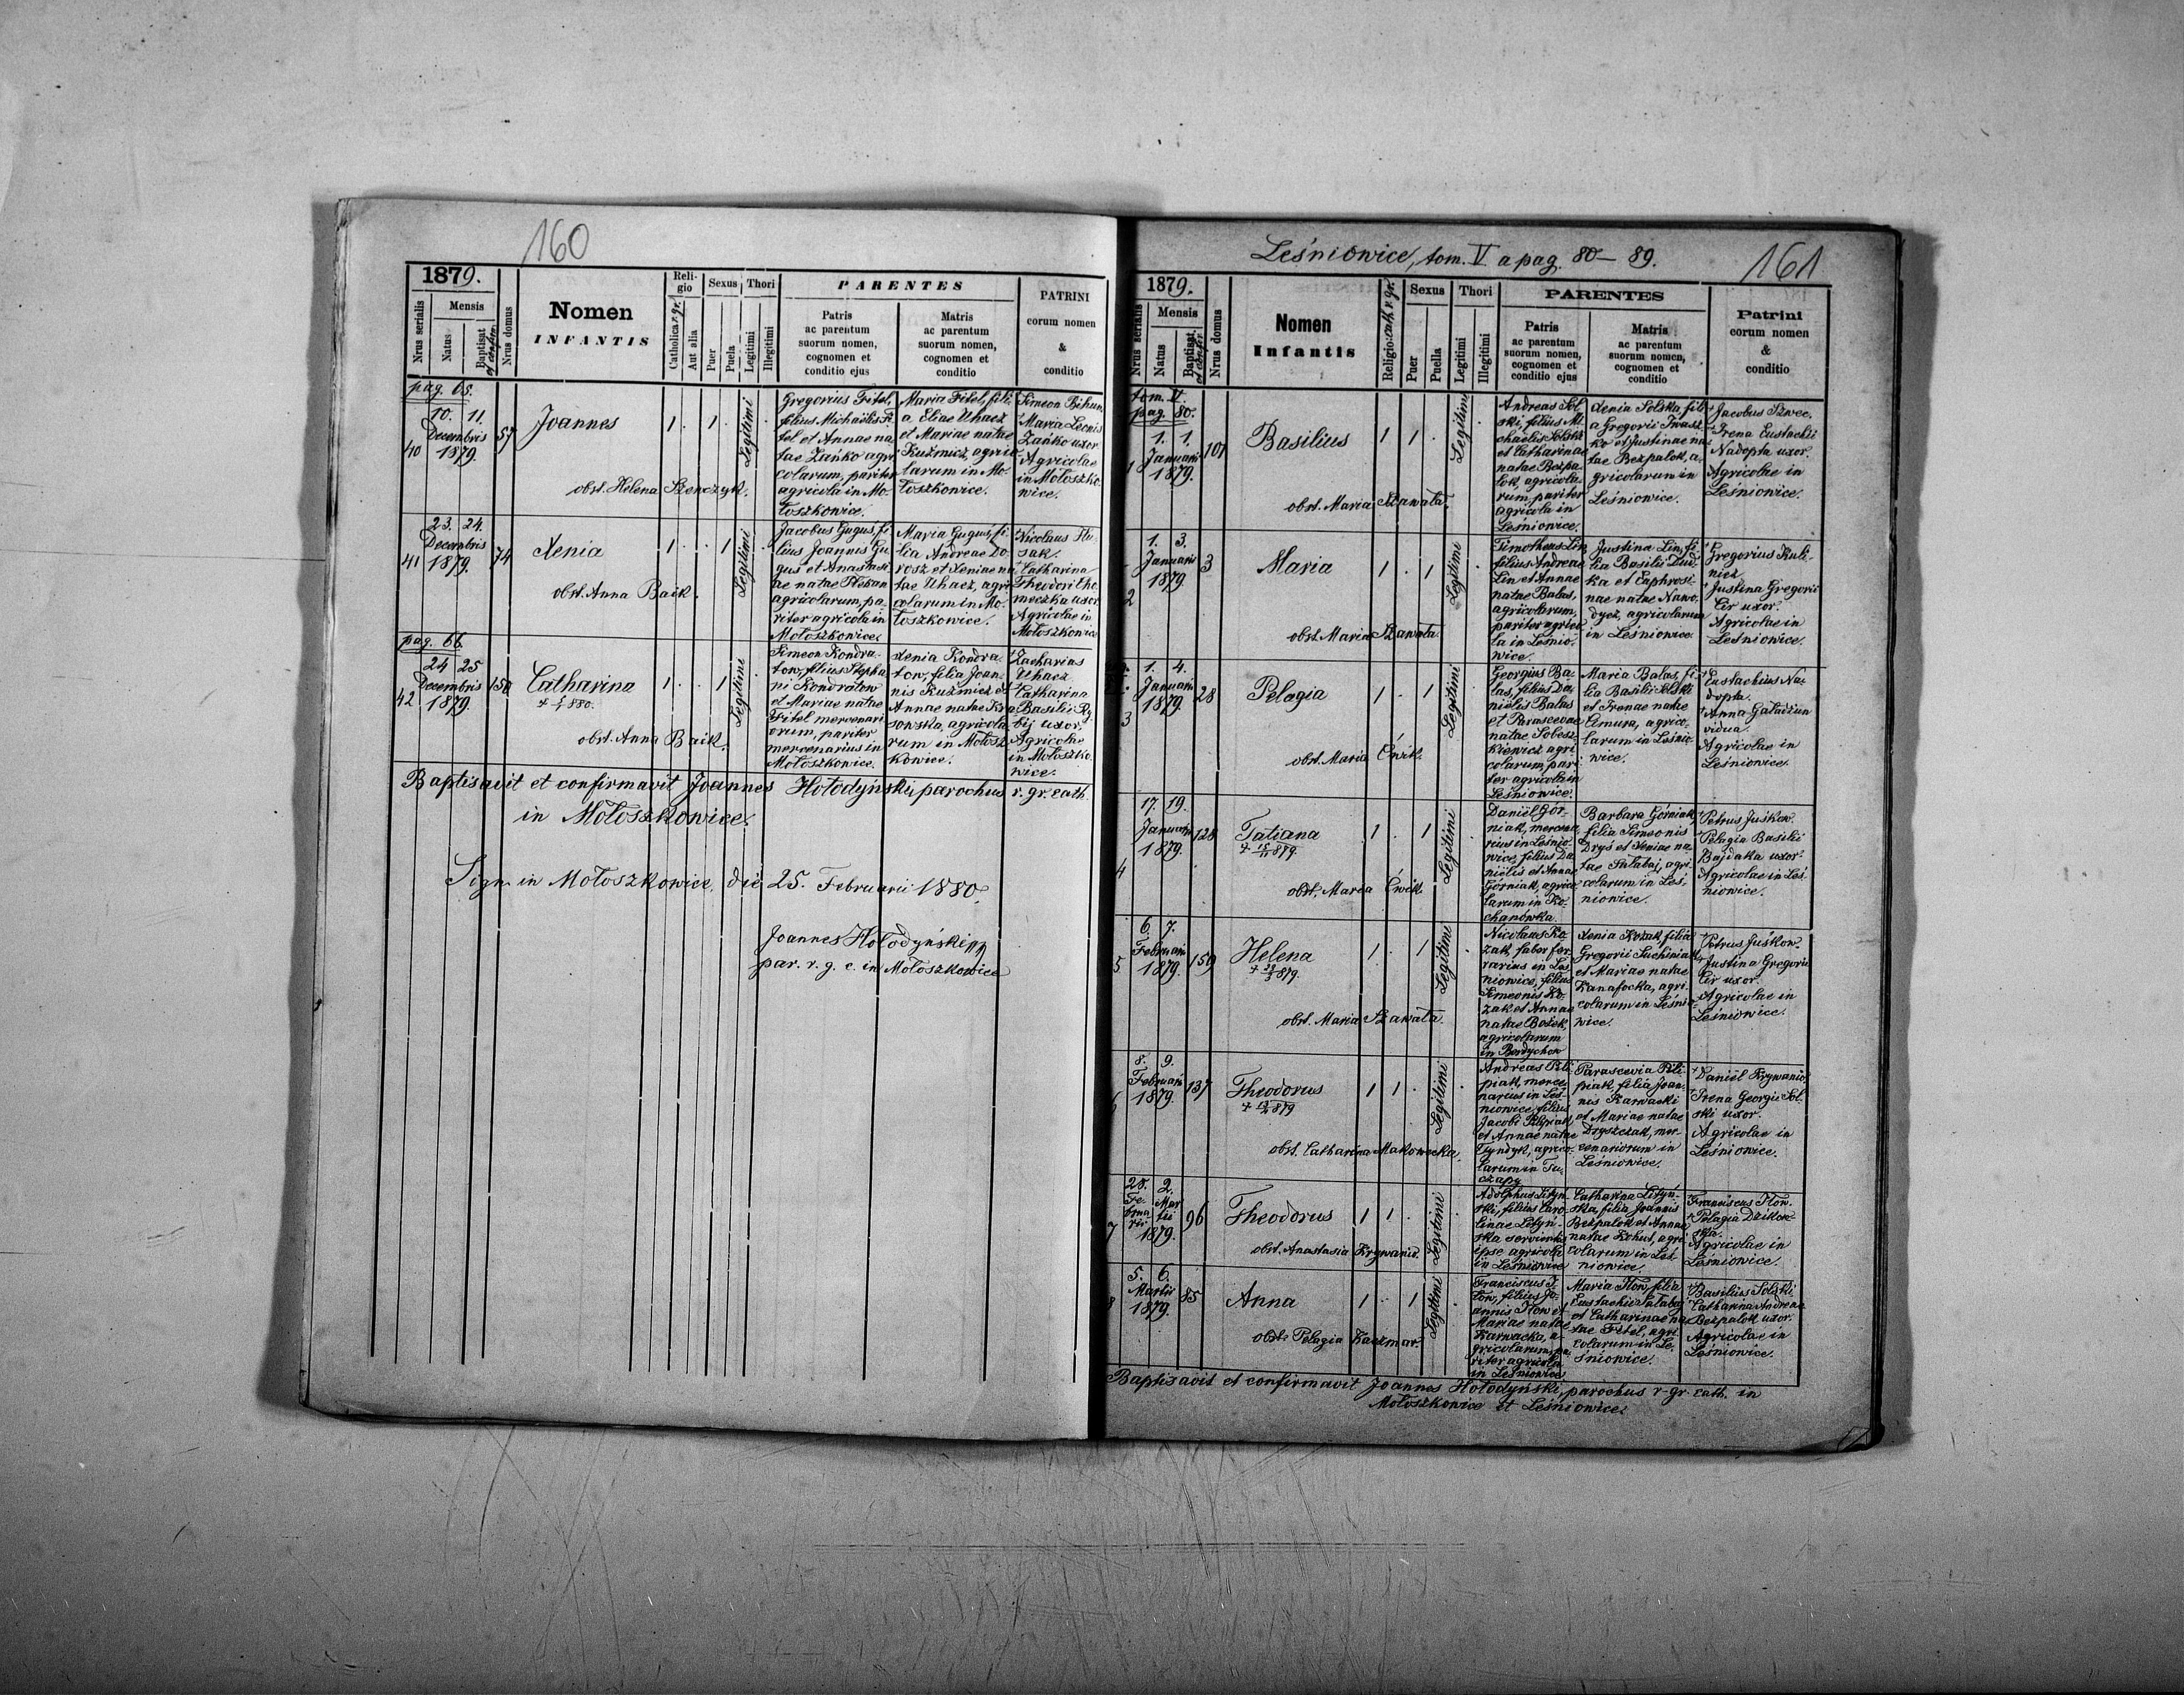 160
1879.
Nrus serialis
Mensis
Natus
Baptisat
et confir.
Nrus domus
Nomen
INFANTIS
Religio
Catholica r. gr.
Aut alia
Sexus
Puer
Puela
Thori
Legitimi
Illegitimi
PARENTES
Patris
ac parentum
suorum nomen,
cognomen et
conditio ejus
Matris
ac parentum
suorum nomen,
cognomen et
conditio
PATRINI
eorum nomen
&
conditio
pag. 65.
40
10. 11.
Decembris
1879.
57
Joannes
obst. Helena Szenczyk.
1 . 1 .
Legitimi
Gregorius Fitel,
filius Michaëlis Fi
tel et Annae na
tae Zańko agri
colarum, pariter
agricola in Mo-
łoszkowice.
Maria Fitel, fili-
a Eliae Uhacz
et Mariae natae
Kuźmicz agrico
larum in Mo-
łoszkowice.
Simeon Bihun
Maria Leonis
Zańko uxor
Agricolae
in Mołoszko-
wice.
41
23. 24.
Decembris
1879.
74
Xenia
obst. Anna Baik.
1 . . 1
Legitimi
Jacobus Guguś, fi
lius Joannis Gu
guś et Anastasi
ae natae
agricolarum, pa-
riter agricola in
Mołoszkowice.
Maria Guguś, fi-
lia Andreae Do-
rosz et Xeniae na
tae Uhacz, agri
colarum in Mo-
łoszkowice.
Nicolaus
Catharina
Theodori Cho-
meczka uxor
Agricolae in
Mołoszkowice
pag. 66.
42
24 25
Decembris
1879.
150
Catharina
obst. Anna Baik.
1 . . 1
Legitimi
Simeon Kondra-
tow, filius Stepha
ni Kondratow
et Mariae natae
Fitel mercenari
orum, pariter
mercenarius in
Mołoszkowice.
Xenia Kondra-
tow, filia Joan-
nis Kuźmicz et
Annae natae Kra
sowska, agricola
rum in Mołosz
kowice.
Zacharias
Uhacz
Catharina
Basilii Ry-
bij uxor,
Agricolae
in Mołoszko
wice.
Baptisavit et confirmavit Joannes Hołodyński, parochus r. gr. cath.
in Mołoszkowice.
Sign. in Mołoszkowice, die 25. Februarii 1880.
Joannes Hołodyński
par. r. g. c. in Mołoszkowice
Leśniowice, tom. V a pag. 80 – 89.
161
1879.
Nrus serialis
Mensis
Natus
Baptisat.
et confir.
Nrus domus
Nomen
Infantis
Religio: cath. r. gr.
Sexus
Puer
Puella
Thori
Legitimi
Illegitimi
PARENTES
Patris
ac parentum
suorum nomen,
cognomen et
conditio ejus
Matris
ac parentum
suorum nomen,
cognomen et
conditio
Patrini
eorum nomen
&
conditio
tom. V.
pag. 80.
1
1. 1.
Januarii
1879.
101
Basilius
obst. Maria Szawała.
1 1 .
Legitimi
Andreas Sol-
ski, filius Mi-
chaëlis Solski
et Catharinae
natae Bezpa-
lok, agricola-
rum, pariter
agricola in
Leśniowice.
Xenia Solska, fili-
a Gregorii Iwasz-
ko et Justinae na-
tae Bezpalok, a-
gricolarum in
Leśniowice.
Jacobus Szwec.
Irena Eustachii
Nadopta uxor.
Agricolae in
Leśniowice.
2
1. 3.
Januarii
1879
3
Maria
obst. Maria Szawała.
1 . 1
Legitimi
Timotheus Lin
filius Andreae
Lin et Annae
natae Balas,
agricolarum,
pariter agrico
la in Leśnio-
wice.
Justina Lin, fi-
lia Basilii Dud-
ka et Euphrosi-
nae natae Nawo-
dycz, agricolarum
in Leśniowice.
Gregorius Kuli-
nicz
Justina Gregorii
Cir uxor.
Agricolae in
Leśniowice.
3
1. 4.
Januarii
1879.
28
Pelagia
obst. Maria Ćwik.
1 . 1
Legitimi
Georgius Ba-
las, filius Da-
niëlis Balas
et Parasceviae
natae Sobesz-
kiewicz agri
colarum, pari
ter agricola in
Leśniowice.
Maria Balas, fi-
lia Basilii Solski
et Irenae natae
Cmura, agrico-
larum in Leśnio-
wice.
Eustachius Na-
dopta.
Anna Gaładzun
vidua.
Agricolae in
Leśniowice.
4
17. 19.
Januarii
1879.
128
Tatiana
obst. Maria Ćwik.
1 . 1
Legitimi
Daniël Gór-
niak, mercena
rius in Leśnio-
wice, filius Da
niëlis et Annae
Górniak, agrico
larum in Ko-
chanówka.
Barbara Górniak,
filia Simeonis
Dryś et Xeniae na
tae Sałabaj, agri
colarum in Leś-
niowice.
Petrus Juśkow.
Pelagia Basilii
Bajdaka uxor.
Agricolae in Leś-
niowice.
5
6. 7.
Februarii
1879.
159
Helena
obst. Maria Szawała.
1 . 1
Legitimi
Nicolaus Ko
zak, faber fer-
rarius in Leś
niowice, filius
Simeonis Ko-
zak et Annae
natae Bożek
agricolarum
in Berdychow
Xenia Kozak, filia
Gregorii Suchiniak
et Mariae natae
Kanafocka, agri-
colarum in Leśnio-
wice.
Petrus Juśkow.
Justina Gregorii
Cir uxor.
Agricolae in
Leśniowice.
6
8. 9.
Februarii
1879.
137
Theodorus
obst. Catharina Makowecka.
1 1 .
Legitimi
Andreas Pili-
piak, merce-
narius in Leś-
niowice, filius
Jacobi Pilipiak
et Annae natae
Tyndyk, agrico-
larum in Tu-
czapy
Parascevia Pili-
piak, filia Joan-
nis Karwacki
et Mariae natae
Dryszczak, mer-
cenariorum in
Leśniowice.
Daniël Krywanio.
Irena Georgii Sol-
ski uxor.
Agricolae in
Leśniowice.
7
28. 2.
Februarii Martii
1879.
96
Theodorus
obst. Anastasia Krywanio.
1 1 .
Legitimi
Adolphus Lityń-
ski, filius Caro-
linae Lityń-
ska
ipse agricola
in Leśniowice
Catharina Lityń-
ska, filia Joannis
Bezpalok et Annae,
natae Kohut, agri
colarum in Leś-
niowice.
Franciscus Iłow.
Pelagia Dzikow-
ska.
Agricolae in
Leśniowice.
8
5. 6.
Martii
1879.
85
Anna
obst: Pelagia Kaczmar.
1 . 1
Legitimi
Franciscus I-
łow, filius Jo-
annis Iłow et
Mariae natae
Karwacka, a-
gricolarum, pa-
riter agricola
in Leśniowice
Maria Iłow, filia
Eustachii Sałabaj
et Catharinae na
tae Fitel, agri-
colarum in Le-
śniowice.
Basilius Solski
Catharina Andreae
Bezpalok uxor.
Agricolae in
Leśniowice.
Baptisavit et confirmavit Joannes Hołodyński, parochus r. gr. cath. in
Mołoszkowice et Leśniowice.